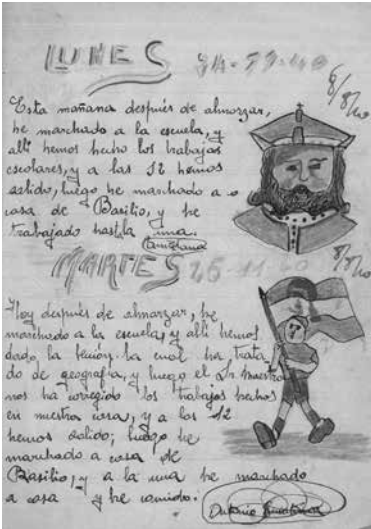 LUNES 24-11-40
Esta mañana después de almorzar,
he marchado a la escuela, y
allí hemos hecho los trabajos
escolares, y a las 12 hemos
salido, luego he marchado a
casa de Basilio, y he
trabajado hasta la una.
MARTES 26-11-40
Hoy después de almorzar, he
marchado a la escuela, y allí hemos
dado, la lección la cual ha trata-
do de geografía, y luego el Sr. Maestro
nos ha corregido los trabajos hechos
en nuestra casa, y a las 12
hemos salido; luego he
marchado a casa de
Basilio, y a la una he marchado
a casa y he comido.
Antonio